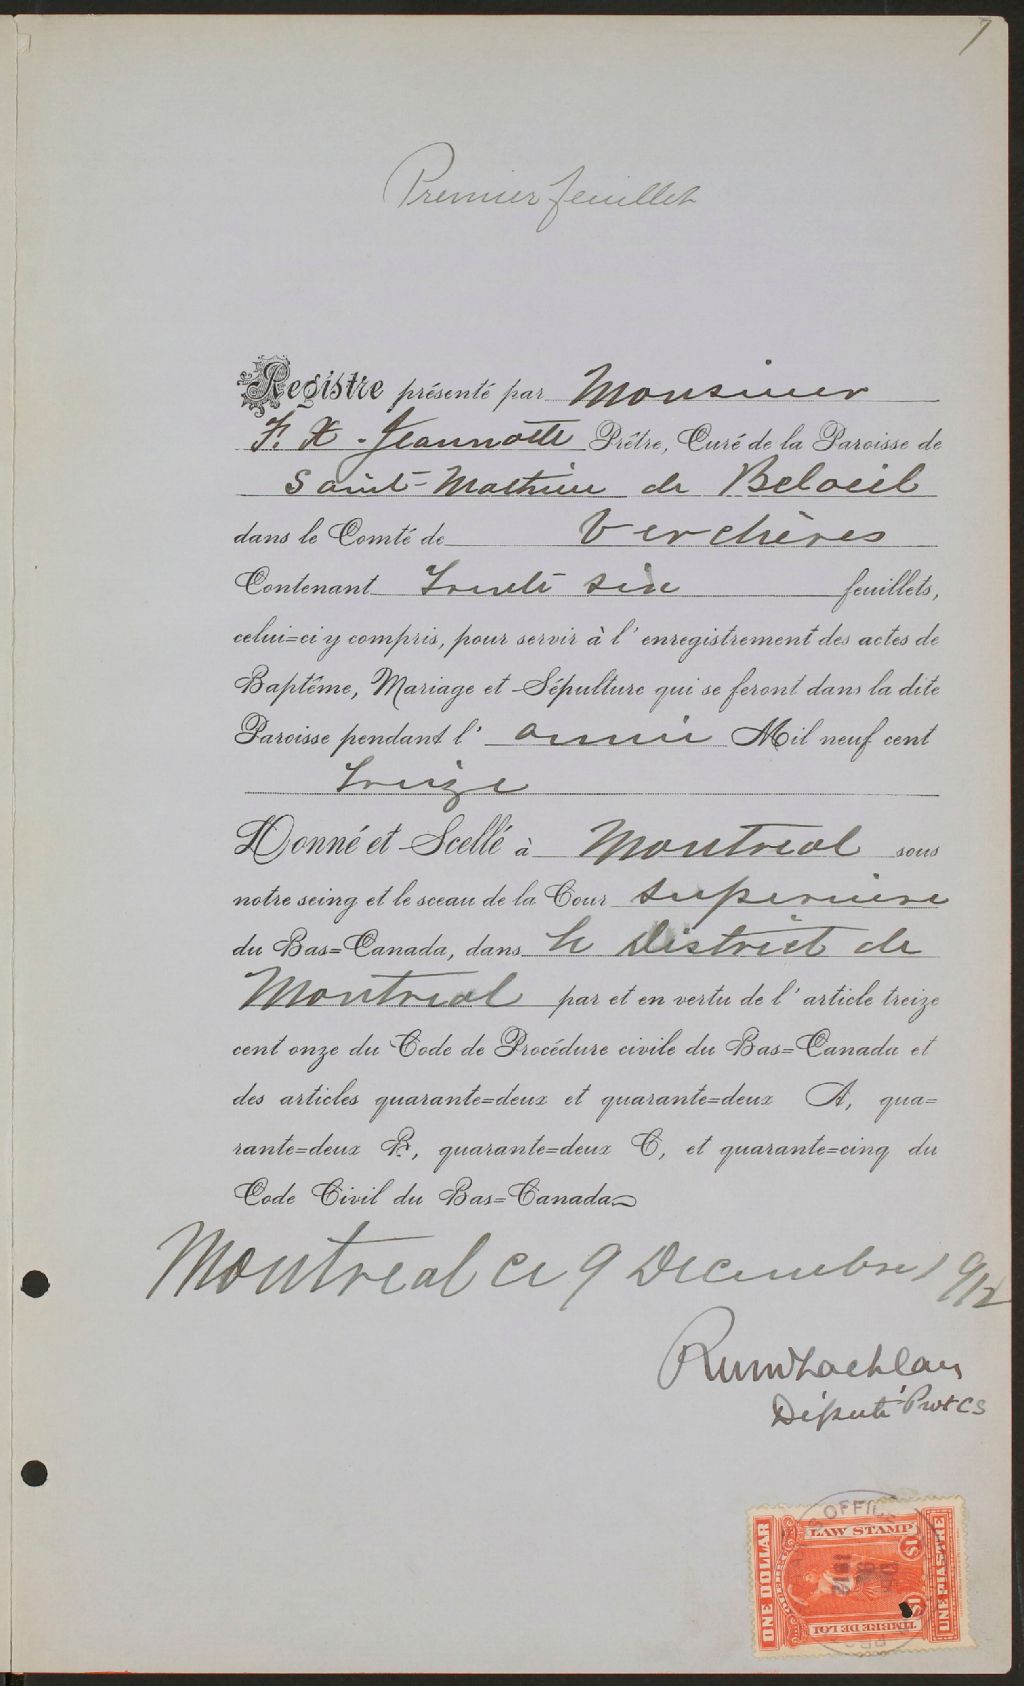 7
Premier feuillet
Registre présenté par Monsieur
F. X. Jeannotte Prêtre, Curé de la Paroisse de
Saint-Mathieu de Beloeil
dans le Comté de Verchères
Contenant Trente six feuillets,
celui=ci y compris, pour servir à l'enregistrement des actes de
Baptême, Mariage et Sépulture qui se feront dans la dite
Paroisse pendant l'année Mil neuf cent
treize
Donné et Scellé à Montreal sous
notre seing et le sceau de la Cour superieure
du Bas=Canada, dans le District de
Montreal par et en vertu de l'article treize
cent onze du Code de Procédure civile du Bas=Canada et
des articles quarante=deux et quarante=deux A, qua=
rante=deux B, quarante=deux C, et quarante=cinq du
Code Civil du Bas=Canada
Montreal ce 9 Decembre 1912
Député Prot CS
OFFICE
LAW STAMP
ONE DOLLAR
$1
$1
UNE PIASTRE
TIMBRE DE LOI
QUEBEC